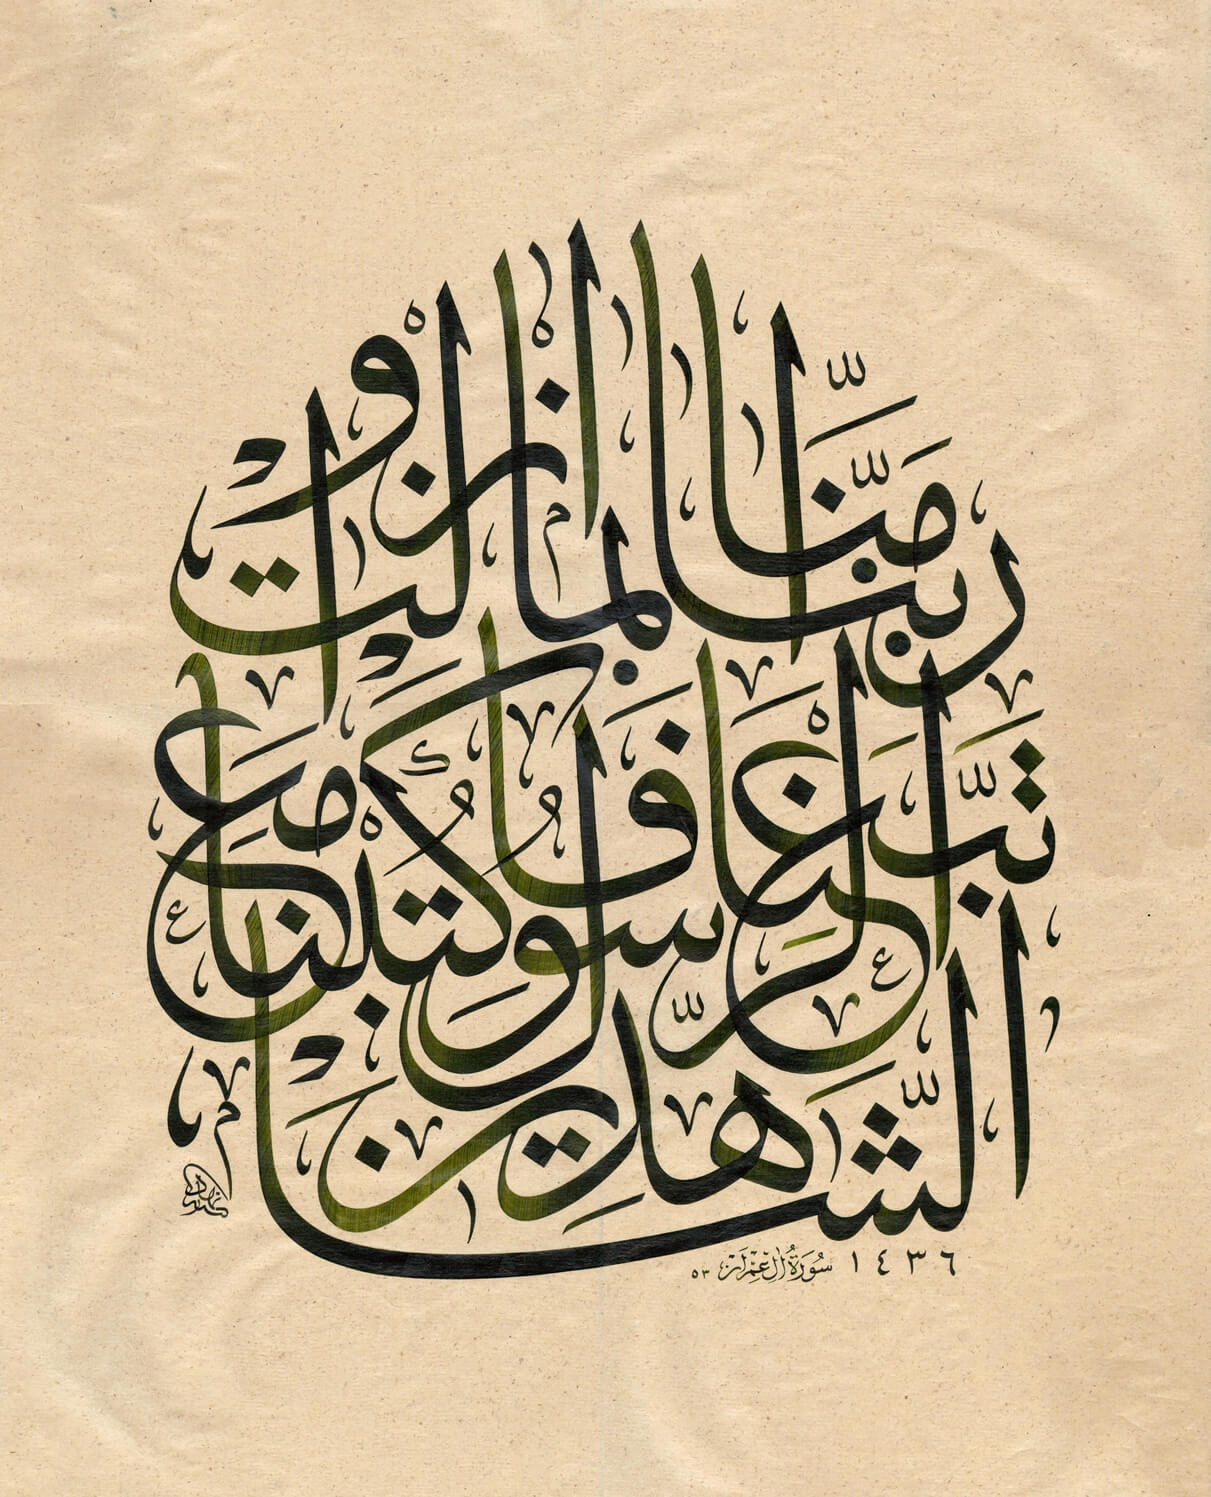 ربنا آمنا بما أنزلت و
اتبعنا الرسول فاكتبنا مع
الشاهدين
سورة آل عمران ٥٣
١٤٣٦